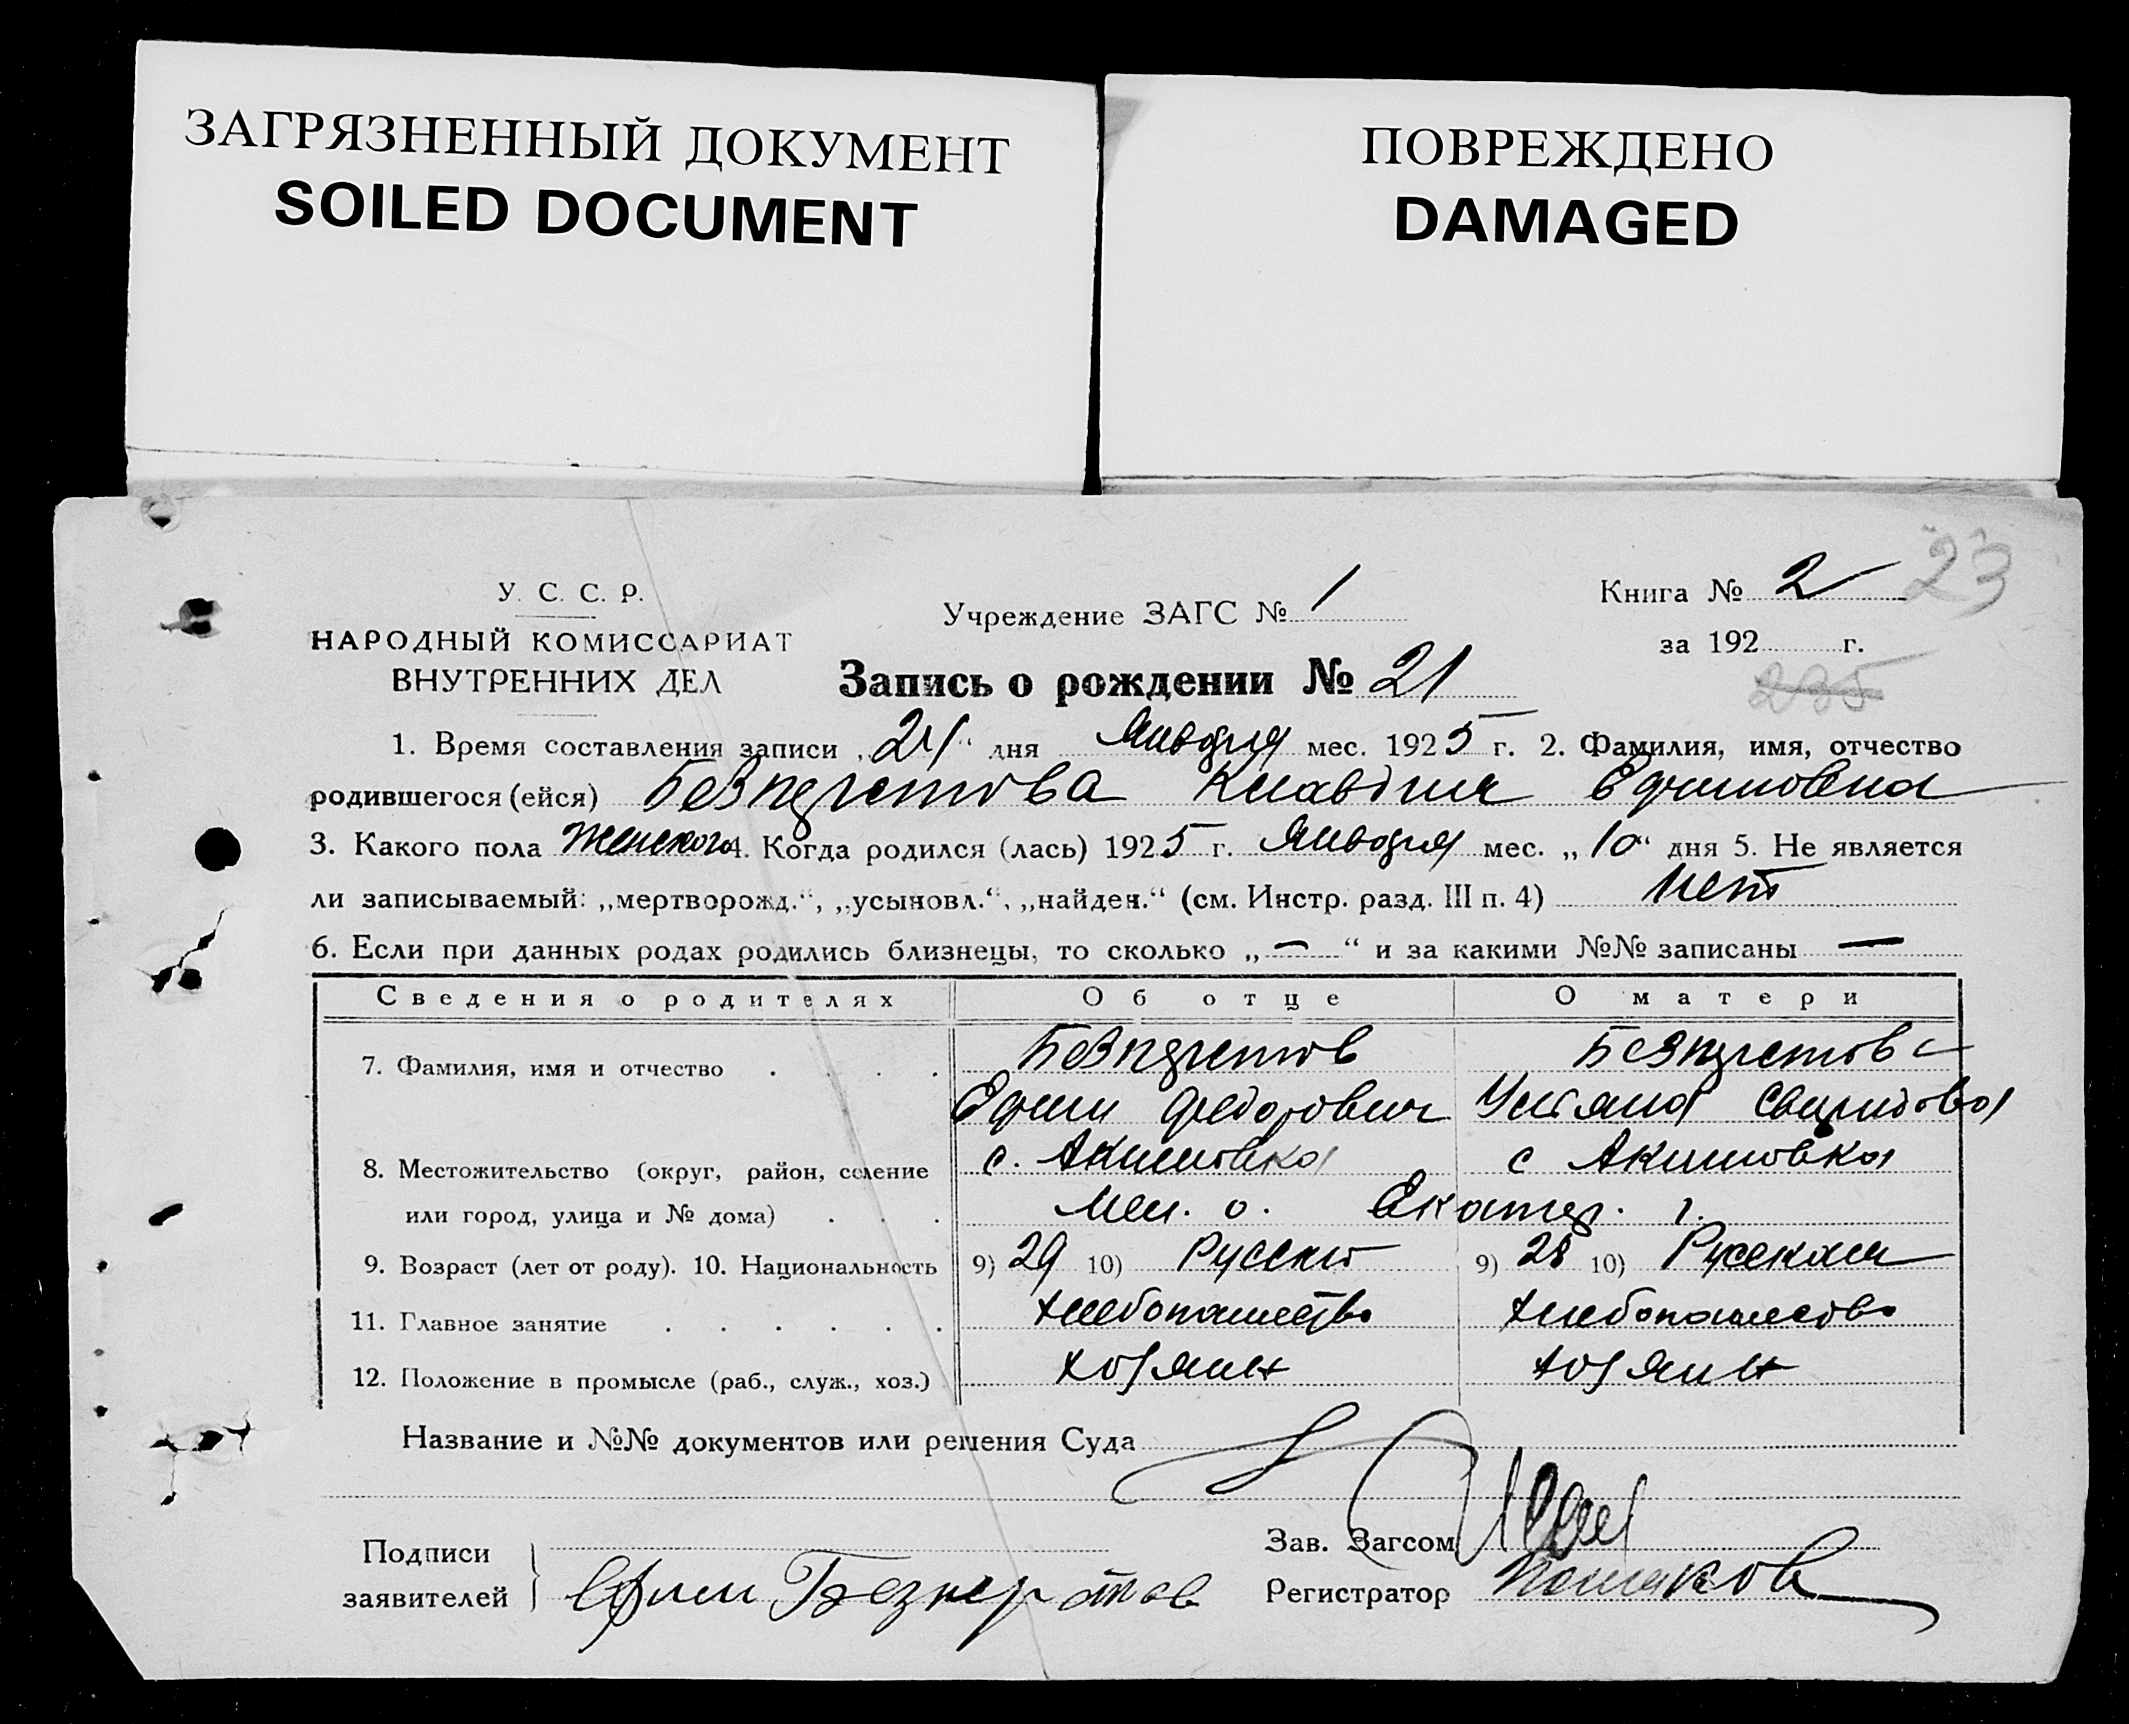 ЗАГРЯЗНЕННЫЙ ДОКУМЕНТ
SOILED DOCUMENT
ПОВРЕЖДЕНО
DAMAGED
23
У. С. С. Р.
НАРОДНЫЙ КОМИССАРИАТ
ВНУТРЕННИХ ДЕЛ
Учреждение ЗАГС № 1
Книга № 2
за 192 г.
235
Запись о рождении № 21
1. Время составления записи „21“ дня Января мес. 1925 г. 2. Фамилия, имя, отчество
родившегося (ейся) Клавдия Ефимовна
3. Какого пола Женского 4. Когда родился (лась) 1925 г. Января мес. „10“ дня 5. Не является
ли записываемый: „мертворожд.“, „усыновл.“, „найден.“ (см. Инстр. разд. III п. 4) нет
6. Если при данных родах родились близнецы, то сколько „—“ и за какими №№ записаны —
Сведения о родителях Об отце О матери
7. Фамилия, имя и отчество
Ефим Федорович Ульяна
8. Местожительство (округ, район, селение с. Акимовка с Акимовка
или город, улица и № дома) Мел. о. Екатер. г.
9. Возраст (лет от роду). 10. Национальность 9) 29 10) Русский 9) 28 10) Русская
11. Главное занятие Хлебопашество Хлебопашество
12. Положение в промысле (раб., служ., хоз.) хозяин хозяин
Название и №№ документов или решения Суда
Подписи
заявителей Ефим
Зав. Загсом
Регистратор